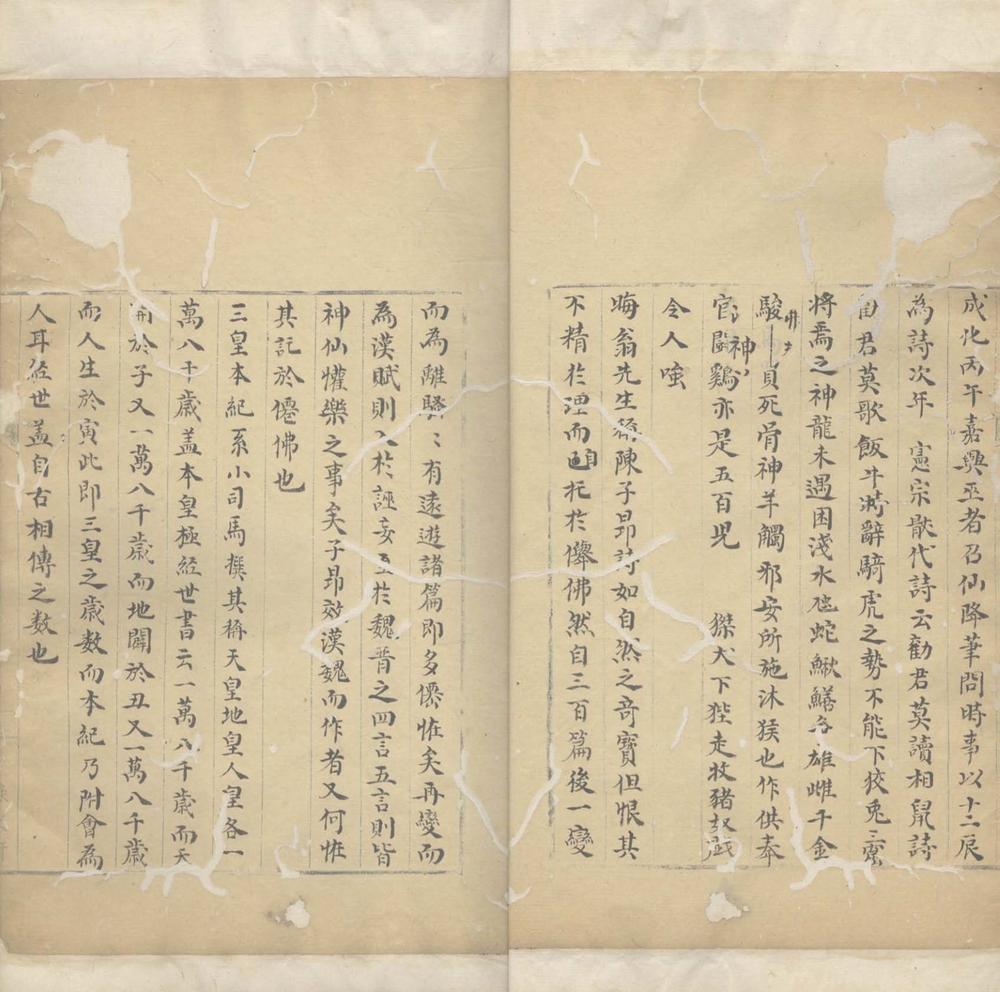 成化丙午嘉興巫者召仙降筆問時事以十二辰
為詩次年　憲宗散代詩云勸君莫讀相鼠詩
勸君莫歌飯牛將辭騎虎之勢不能下狡兔三窟
將焉之神龍未遇困淺水虺蛇鰍鱔各雄雌千金
駿骨員死骨神羊觸邪安所施沐猴也作供奉
官鬬神鷄亦是五百兒　　桀犬下陛走牧豬奴戲
令人嗤
晦翁先生稱陳子昂詩如自然之奇寶但恨其
不精於理而自托於僊佛然自三百篇後一變
而為離騷〻有遠遊諸篇即多僊恠矣再變而
為漢賦則入於誣妄至於魏晉之四言五言則皆
神仙懽樂之事矣子昂效漢魏而作者又何恠
其託於僊佛也
三皇本紀系小司馬撰其稱天皇地皇人皇各一
萬八千歲蓋本皇極經世書云一萬八千歲而天
開於子又一萬八千歲而地闢於丑又一萬八千歲
而人生於寅此即三皇之歲數而本紀乃附會為
人耳經世蓋自古相傳之数也